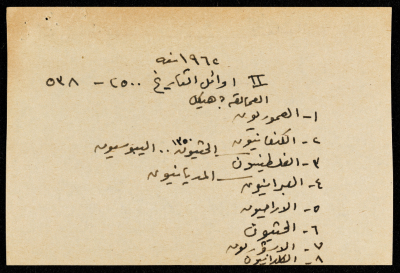 ١٩٦٢ سنه
II اوائل التاريخ ٢٥٠٠ - ٥٣٨
العمالقه ? هيكل
١- العموريون
٢- الكنعانيون
الحثيون ١٣٥٠ .. اليبوسيون
٣- الفلسطينيون
٤- العبرانيون - المديانيون
٥- الاراميون
٦- الحثيون
٧-
٨- الكلدانيون